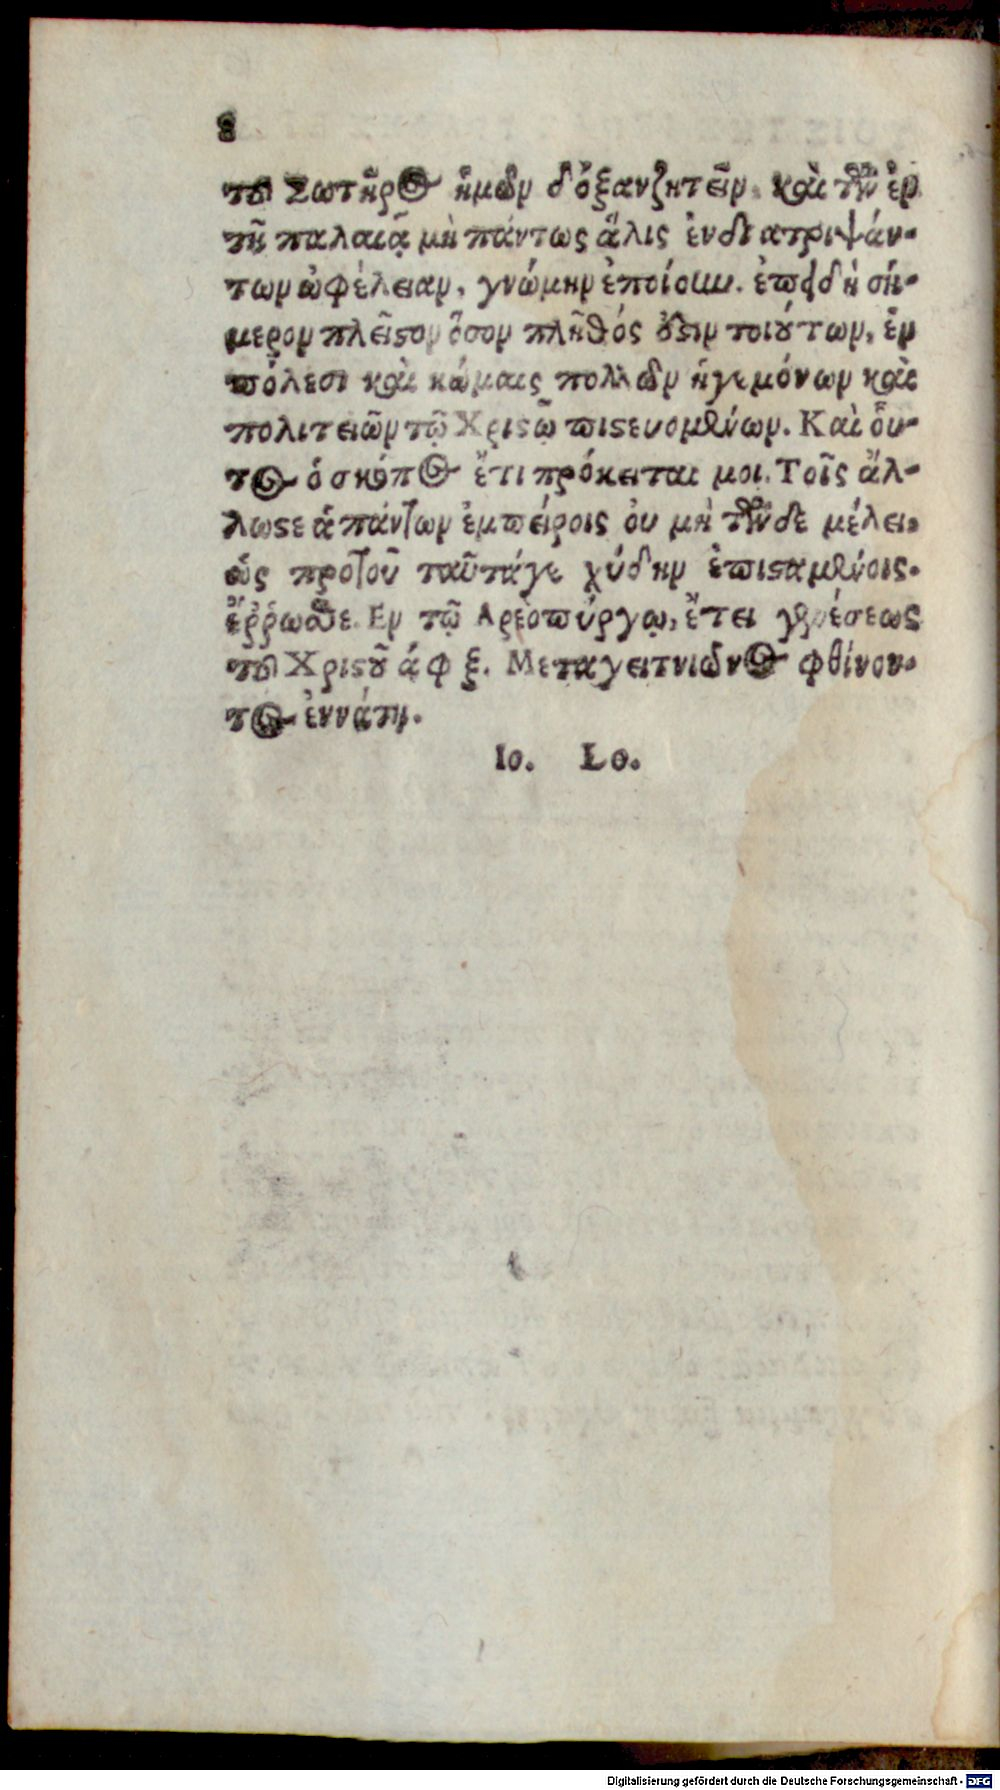 8
τοῦ Σωτῆρος ἡμῶν δόξαν ζητεῖν, καὶ τὴν ἐν
τῇ παλαιᾷ μὴ πάντως ἅλις ἐνδιατριψάν-
των ὠφέλειαν, γνώμην ἐποίουμ. ἐπειδὴ σή-
μερον πλεῖστον ὅσον πλῆθός ὅστιν τοιούτων, ἐν
πόλεσι καὶ κώμαις πολλῶν ἡγεμόνων καὶ
πολιτειῶν τῷ Χριστῷ πιστευομένων. Καὶ οὗ-
τος ὁ σκόπος ἔτι πρόκειται μοι. Τοῖς ἄλ-
λωστε ἁπάντων ἐμπείροις οὐ μὴ τήνδε μέλει,
ὡς προτοῦ ταῦτάγε χύδην ἐπισταμένοις.
ἔῤῥωσθε. Εν τῷ Αρεοπύργῳ, ἔτει γενέσεως
τοῦ Χριστοῦ ἁ φ ξ. Μεταγειτνιῶνος φθίνον-
τος ἐννάτῃ.
Ιο. Lo.
Digitalisierung gefördert durch die Deutsche Forschungsgemeinschaft - DFG